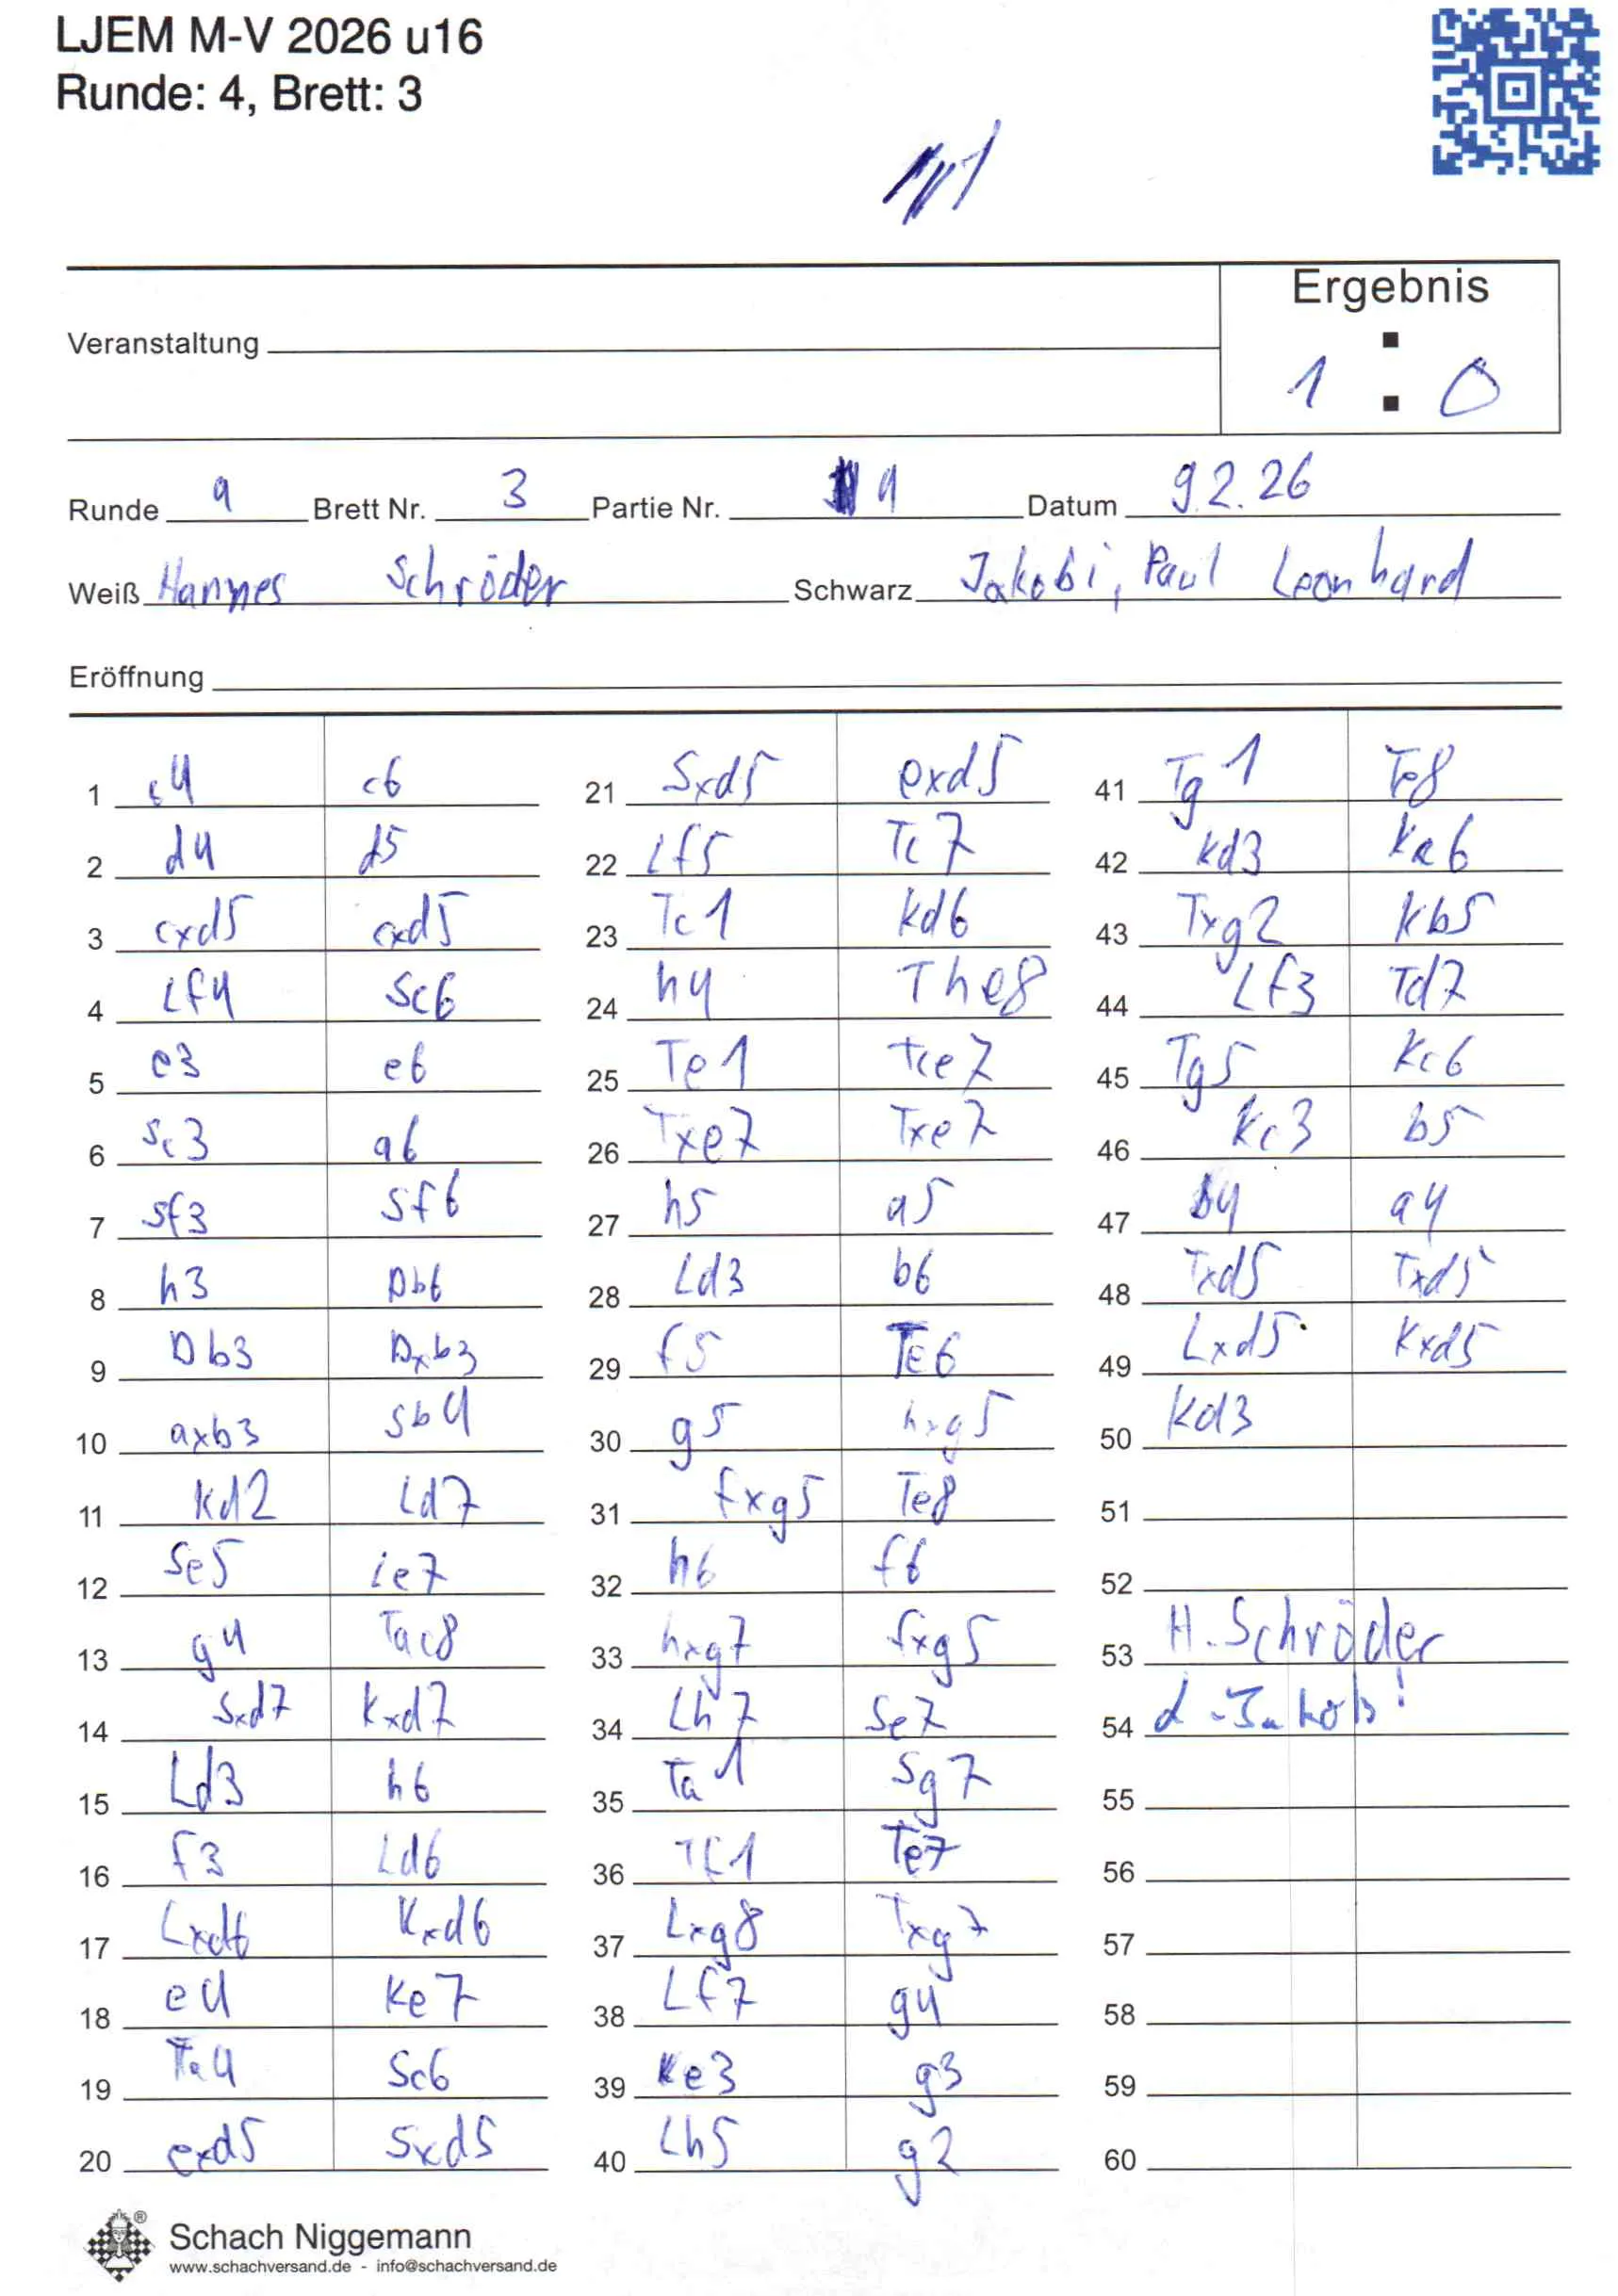 LJEM M-V 2026 u16
Runde: 4, Brett: 3
Ergebnis
Veranstaltung
1 : 0
Runde 4 Brett Nr. 3 Partie Nr. 4 Datum 9.2.26
Weiß Hannes Schröder Schwarz Jakobi, Paul Leonhard
Eröffnung
1 c4 c6
2 d4 d5
3 cxd5 cxd5
4 Lf4 Sc6
5 e3 e6
6 Sc3 a6
7 Sf3 Sf6
8 h3 Db6
9 Db3 Dxb3
10 axb3 Sb4
11 Kd2 Ld7
12 Se5 Le7
13 g4 Tac8
14 Sxd7 Kxd7
15 Ld3 h6
16 f3 Ld6
17 Lxd6 Kxd6
18 e4 Ke7
19 Ta4 Sc6
20 exd5 Sxd5
21 Sxd5 exd5
22 Lf5 Tc7
23 Tc1 Kd6
24 h4 The8
25 Te1 Tce7
26 Txe7 Txe7
27 h5 a5
28 Ld3 b6
29 f5 Te6
30 g5 hxg5
31 fxg5 Te8
32 h6 f6
33 hxg7 fxg5
34 Lh7 Se7
35 Ta1 Sg7
36 Tf1 Te7
37 Lxg8 Txg7
38 Lf7 g4
39 Ke3 g3
40 Lh5 g2
41 Tg1 Te8
42 Kd3 Ka6
43 Txg2 Kb5
44 Lf3 Td7
45 Tg5 Kc6
46 Kc3 b5
47 b4 a4
48 Txd5 Txd5
49 Lxd5 Kxd5
50 Kd3
51
52
53 H. Schröder
54
55
56
57
58
59
60
Schach Niggemann
www.schachversand.de - info@schachversand.de